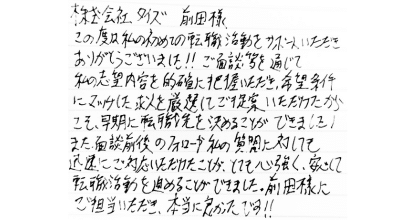 株式会社 タイズ 前田様
この度は私の初めての転職活動をサポートいただき
ありがとうございました!! ご面談等を通じて
私の志望内容を的確に把握いただき、希望条件
にマッチした求人を厳選してご提案いただけたから
こそ、早期に転職先を決めることができました!
また、面談前後のフォローや私の質問に対しても
迅速にご対応いただけたことが、とても心強く、安心して
転職活動を進めることができました。前田様に
ご担当いただき、本当に良かったです!!